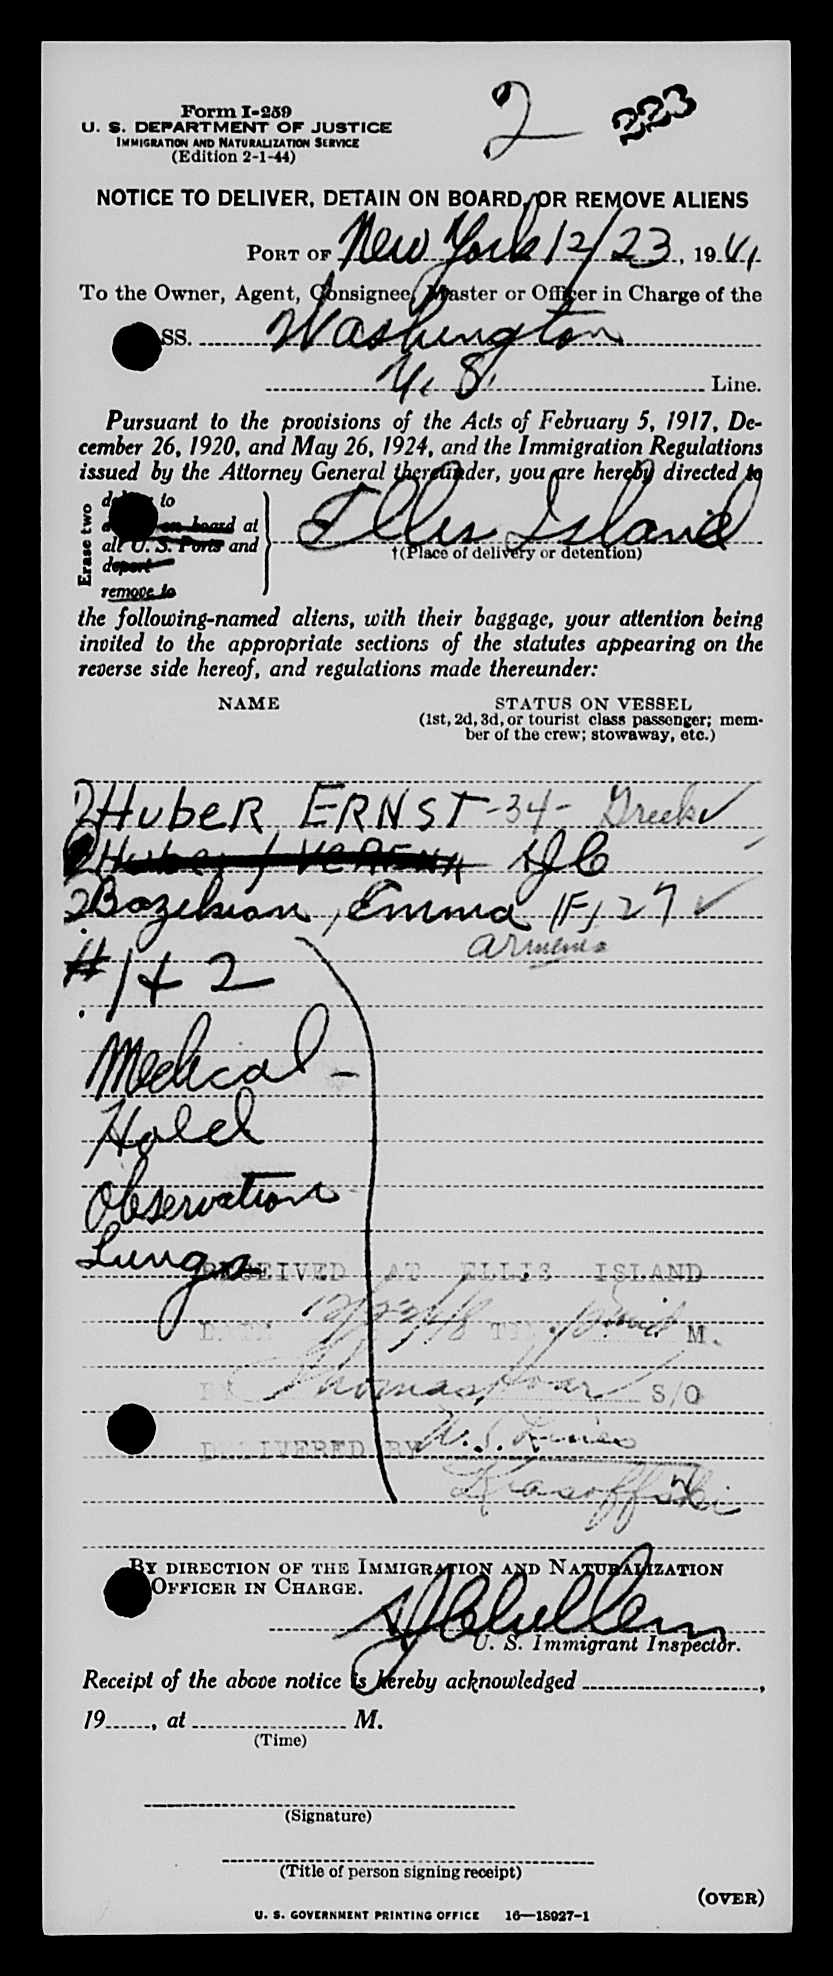 2
223
Form I-259
U. S. DEPARTMENT OF JUSTICE
IMMIGRATION AND NATURALIZATION SERVICE
(Edition 2-1-44)
NOTICE TO DELIVER, DETAIN ON BOARD, OR REMOVE ALIENS
PORT OF New York 12/23, 19
To the Owner, Agent, Consignee, Master or Officer in Charge of the
SS. Washington
U. S. Line.
Pursuant to the provisions of the Acts of February 5, 1917, De-
cember 26, 1920, and May 26, 1924, and the Immigration Regulations
issued by the Attorney General thereunder, you are hereby directed to
Erase two
to
on board at
all U. S. Ports and
deport
remove to
Ellis Island
†(Place of delivery or detention)
the following-named aliens, with their baggage, your attention being
invited to the appropriate sections of the statutes appearing on the
reverse side hereof, and regulations made thereunder:
NAME STATUS ON VESSEL
(1st, 2d, 3d, or tourist class passenger; mem-
ber of the crew; stowaway, etc.)
HubeR ERNST -34- Greek ✓
Huber, VERENA
2 Bozekian, Emma (F) 27 ✓
# 1 + 2
Medical -
Hold
Observation
Lungs
RECEIVED AT ELLIS ISLAND
DATE 12/23/48 M.
Thomas S/O
DELIVERED BY U.S. Lines
BY DIRECTION OF THE IMMIGRATION AND NATURALIZATION
OFFICER IN CHARGE.
U. S. Immigrant Inspector.
Receipt of the above notice is hereby acknowledged ,
19 , at M.
(Time)
(Signature)
(Title of person signing receipt)
(OVER)
U. S. GOVERNMENT PRINTING OFFICE 16—18927-1